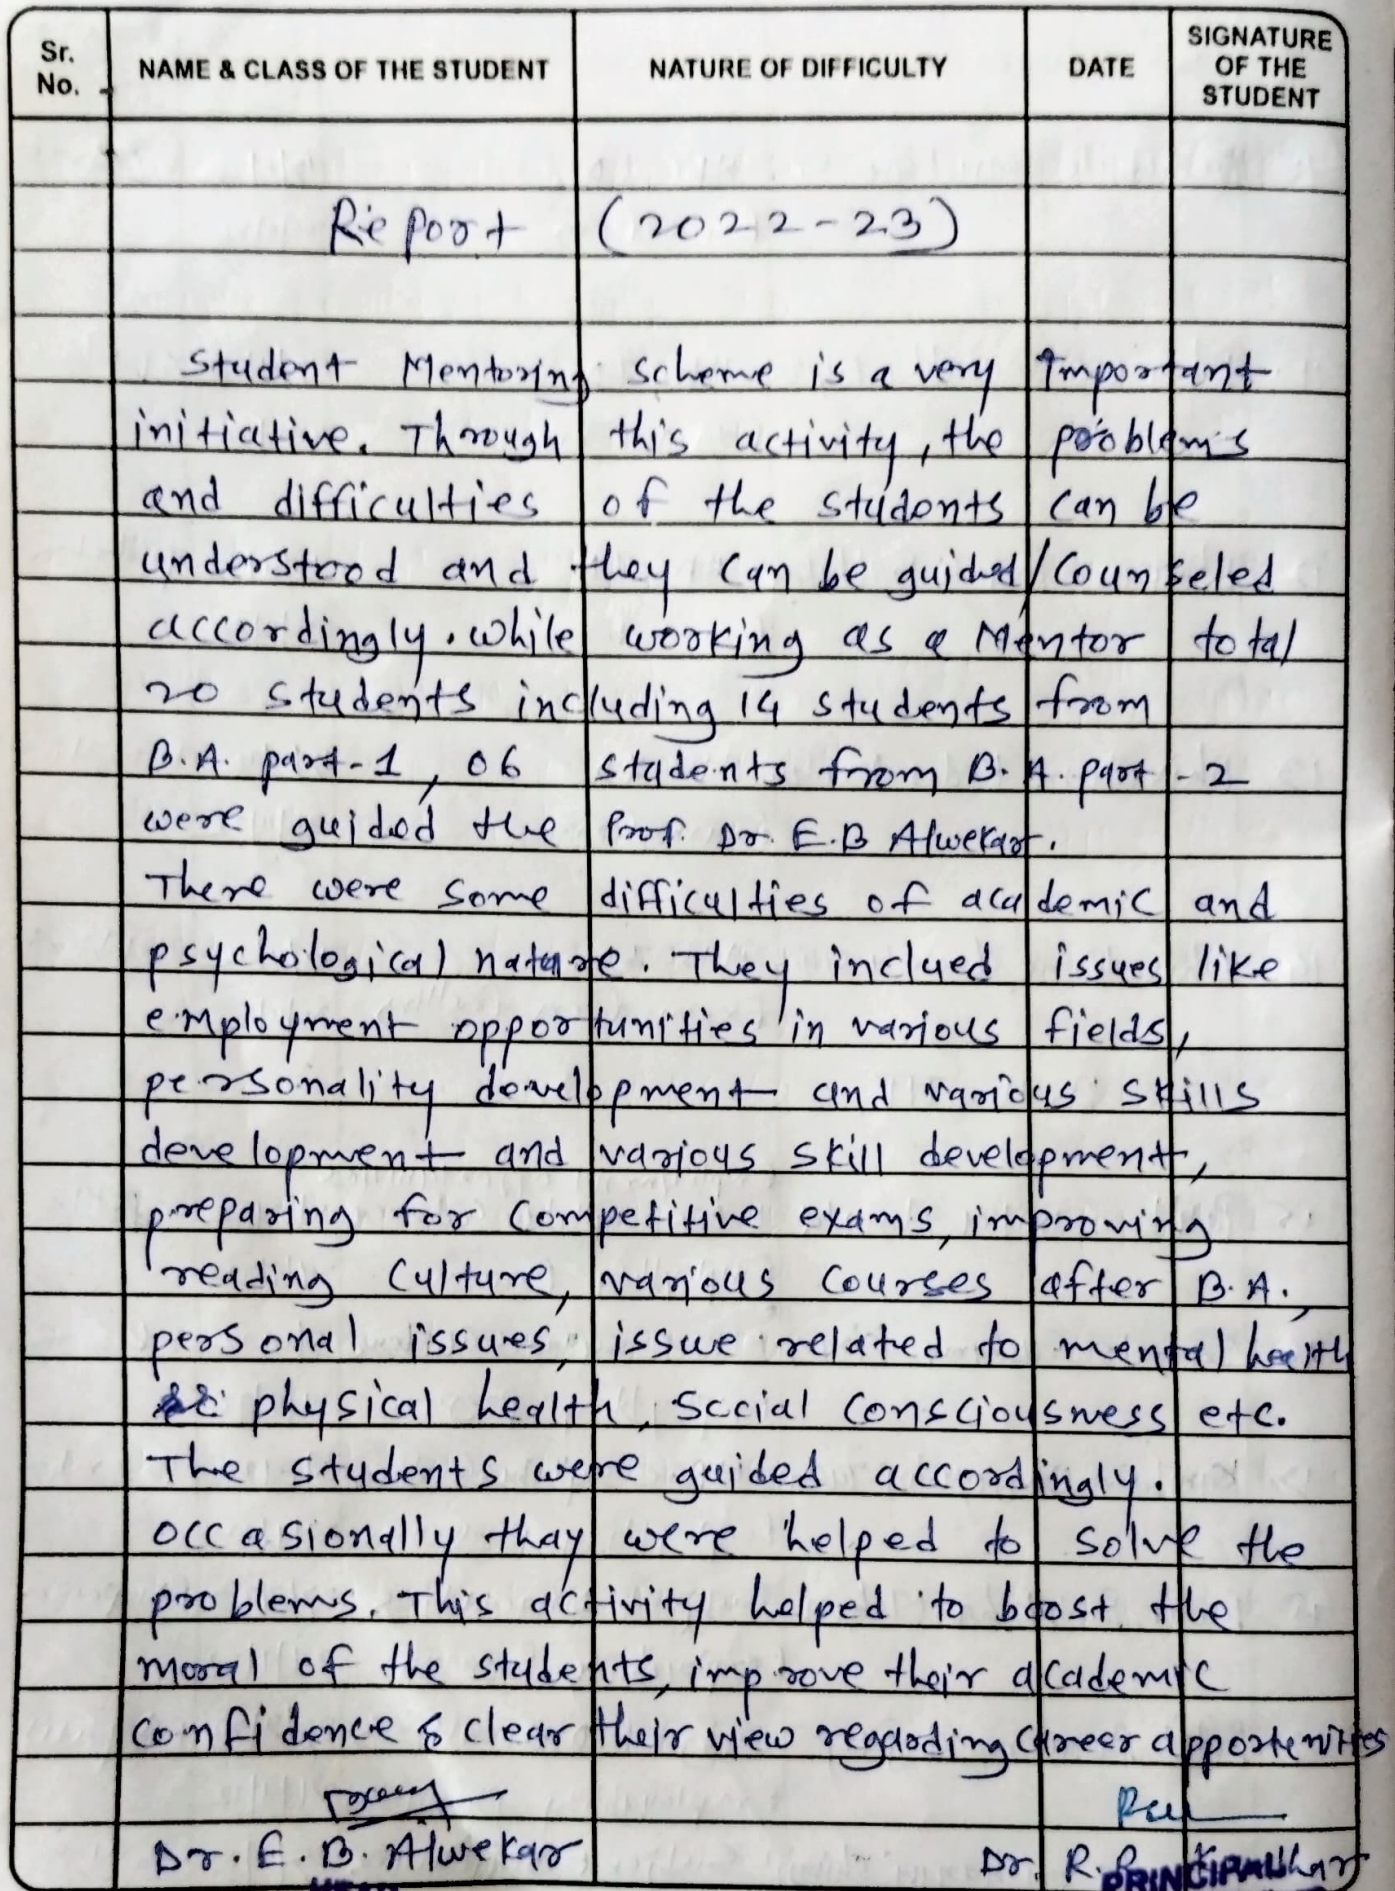 Sr. No.
NAME & CLASS OF THE STUDENT
NATURE OF DIFFICULTY
DATE
SIGNATURE OF THE STUDENT
Report (2022-23)
Student Mentoring scheme is a very Important
initiative. Through this activity, the problems
and difficulties of the students can be
understood and they can be guided/Counseled
accordingly. While working as a Mentor total
20 students including 14 students from
B.A. part-1, 06 students from B.A. part-2
were guided the Prof. Dr. E.B Alwekar.
There were some difficulties of academic and
psychological nature. They inclued issues like
employment opportunities in various fields,
personality development and various skills
development and various skill development,
preparing for Competitive exams, improving
reading Culture, various Courses after B.A.,
personal issues, issue related to mental health
physical health, Social Consciousness etc.
The students were guided accordingly.
Occasionally thay were helped to solve the
problems. This activity helped to boost the
moral of the students, improve their academic
confidence & clear their view regarding Career apportenities
Dr. E. B. Alwekar
Dr. R.
PRINCIPAL